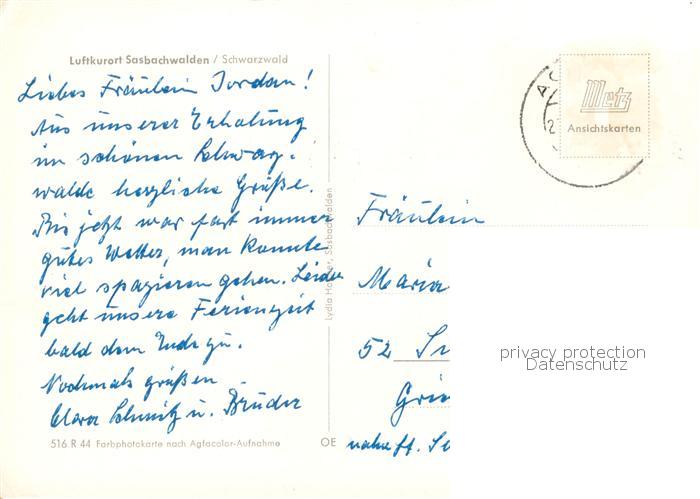 Luftkurort Sasbachwalden / Schwarzwald
Liebes Fräulein Jordan!
Aus unserer Erholung
im schönen Schwarz-
walde herzliche Grüße.
Bis jetzt war fast immer
gutes Wetter, man konnte
viel spazieren gehen. Leider
geht unsere Ferienzeit
bald dem Ende zu.
Nochmals grüßen
Clara Schmitz u. Brüder
516 R 44 Farbphotokarte nach Agfacolor-Aufnahme
OE
Lydia
Sasbachwalden
Metz
Ansichtskarten
Fräulein
Maria
52
nahe ft.
privacy protection
Datenschutz